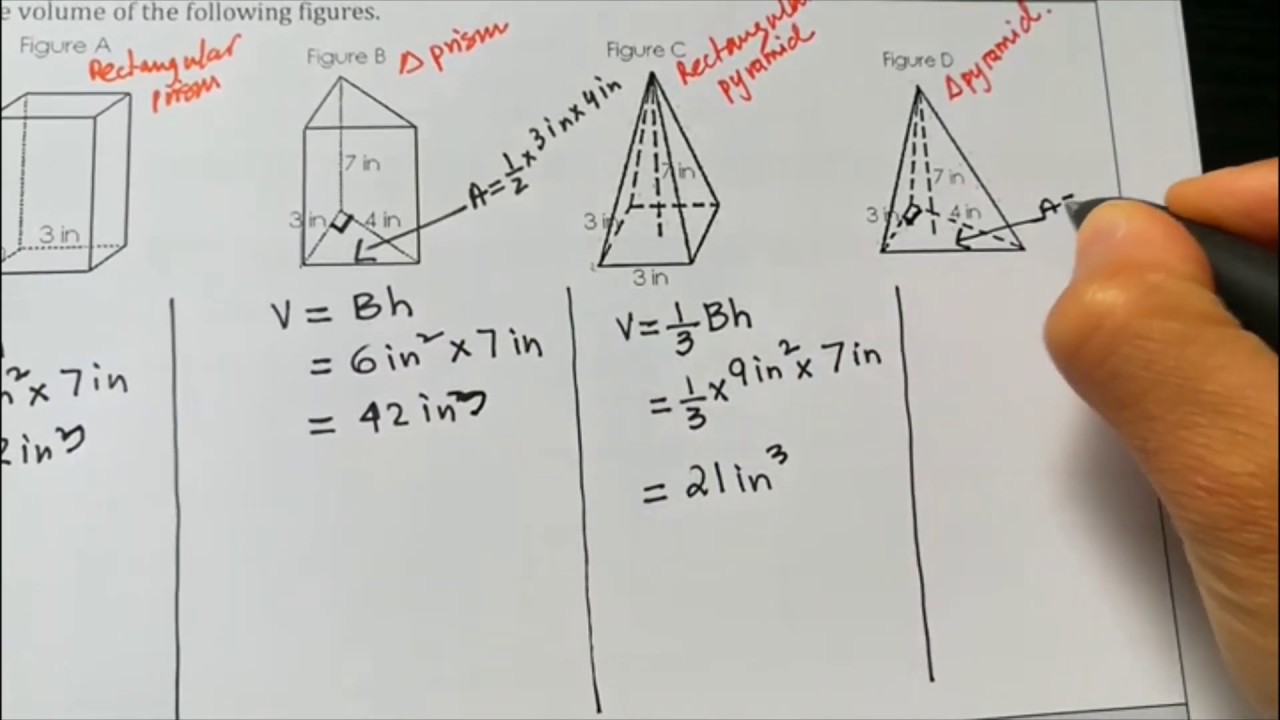 e volume of the following figures.
Figure A
Rectangular
prism
3 in
n² x 7 in
2 in³
Figure B
Δ prism
7 in
3 in
4 in
A = 1/2 x 3 in x 4 in
V = Bh
= 6 in² x 7 in
= 42 in³
Figure C
Rectangular
pyramid
7 in
3 in
3 in
V = 1/3 Bh
= 1/3 x 9 in² x 7 in
= 21 in³
Figure D
Δ pyramid.
7 in
3
4 in
A =